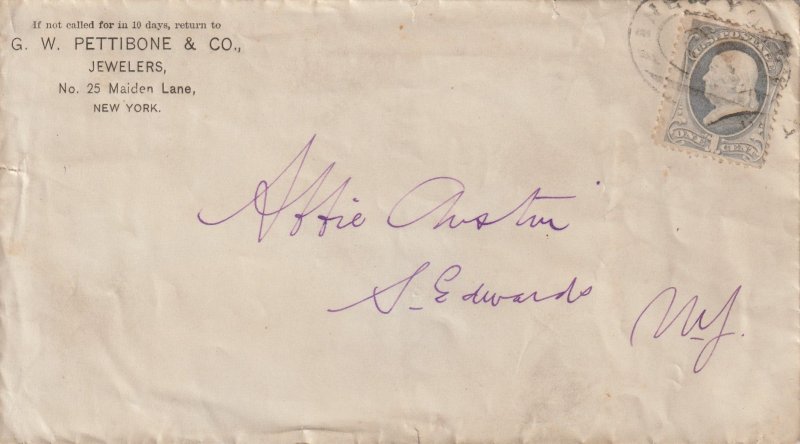 If not called for in 10 days, return to
G. W. PETTIBONE & CO.,
JEWELERS,
No. 25 Maiden Lane,
NEW YORK.
U.S. POSTAGE
ONE 1 CENT
Affie Austin
S. Edwards
N.Y.